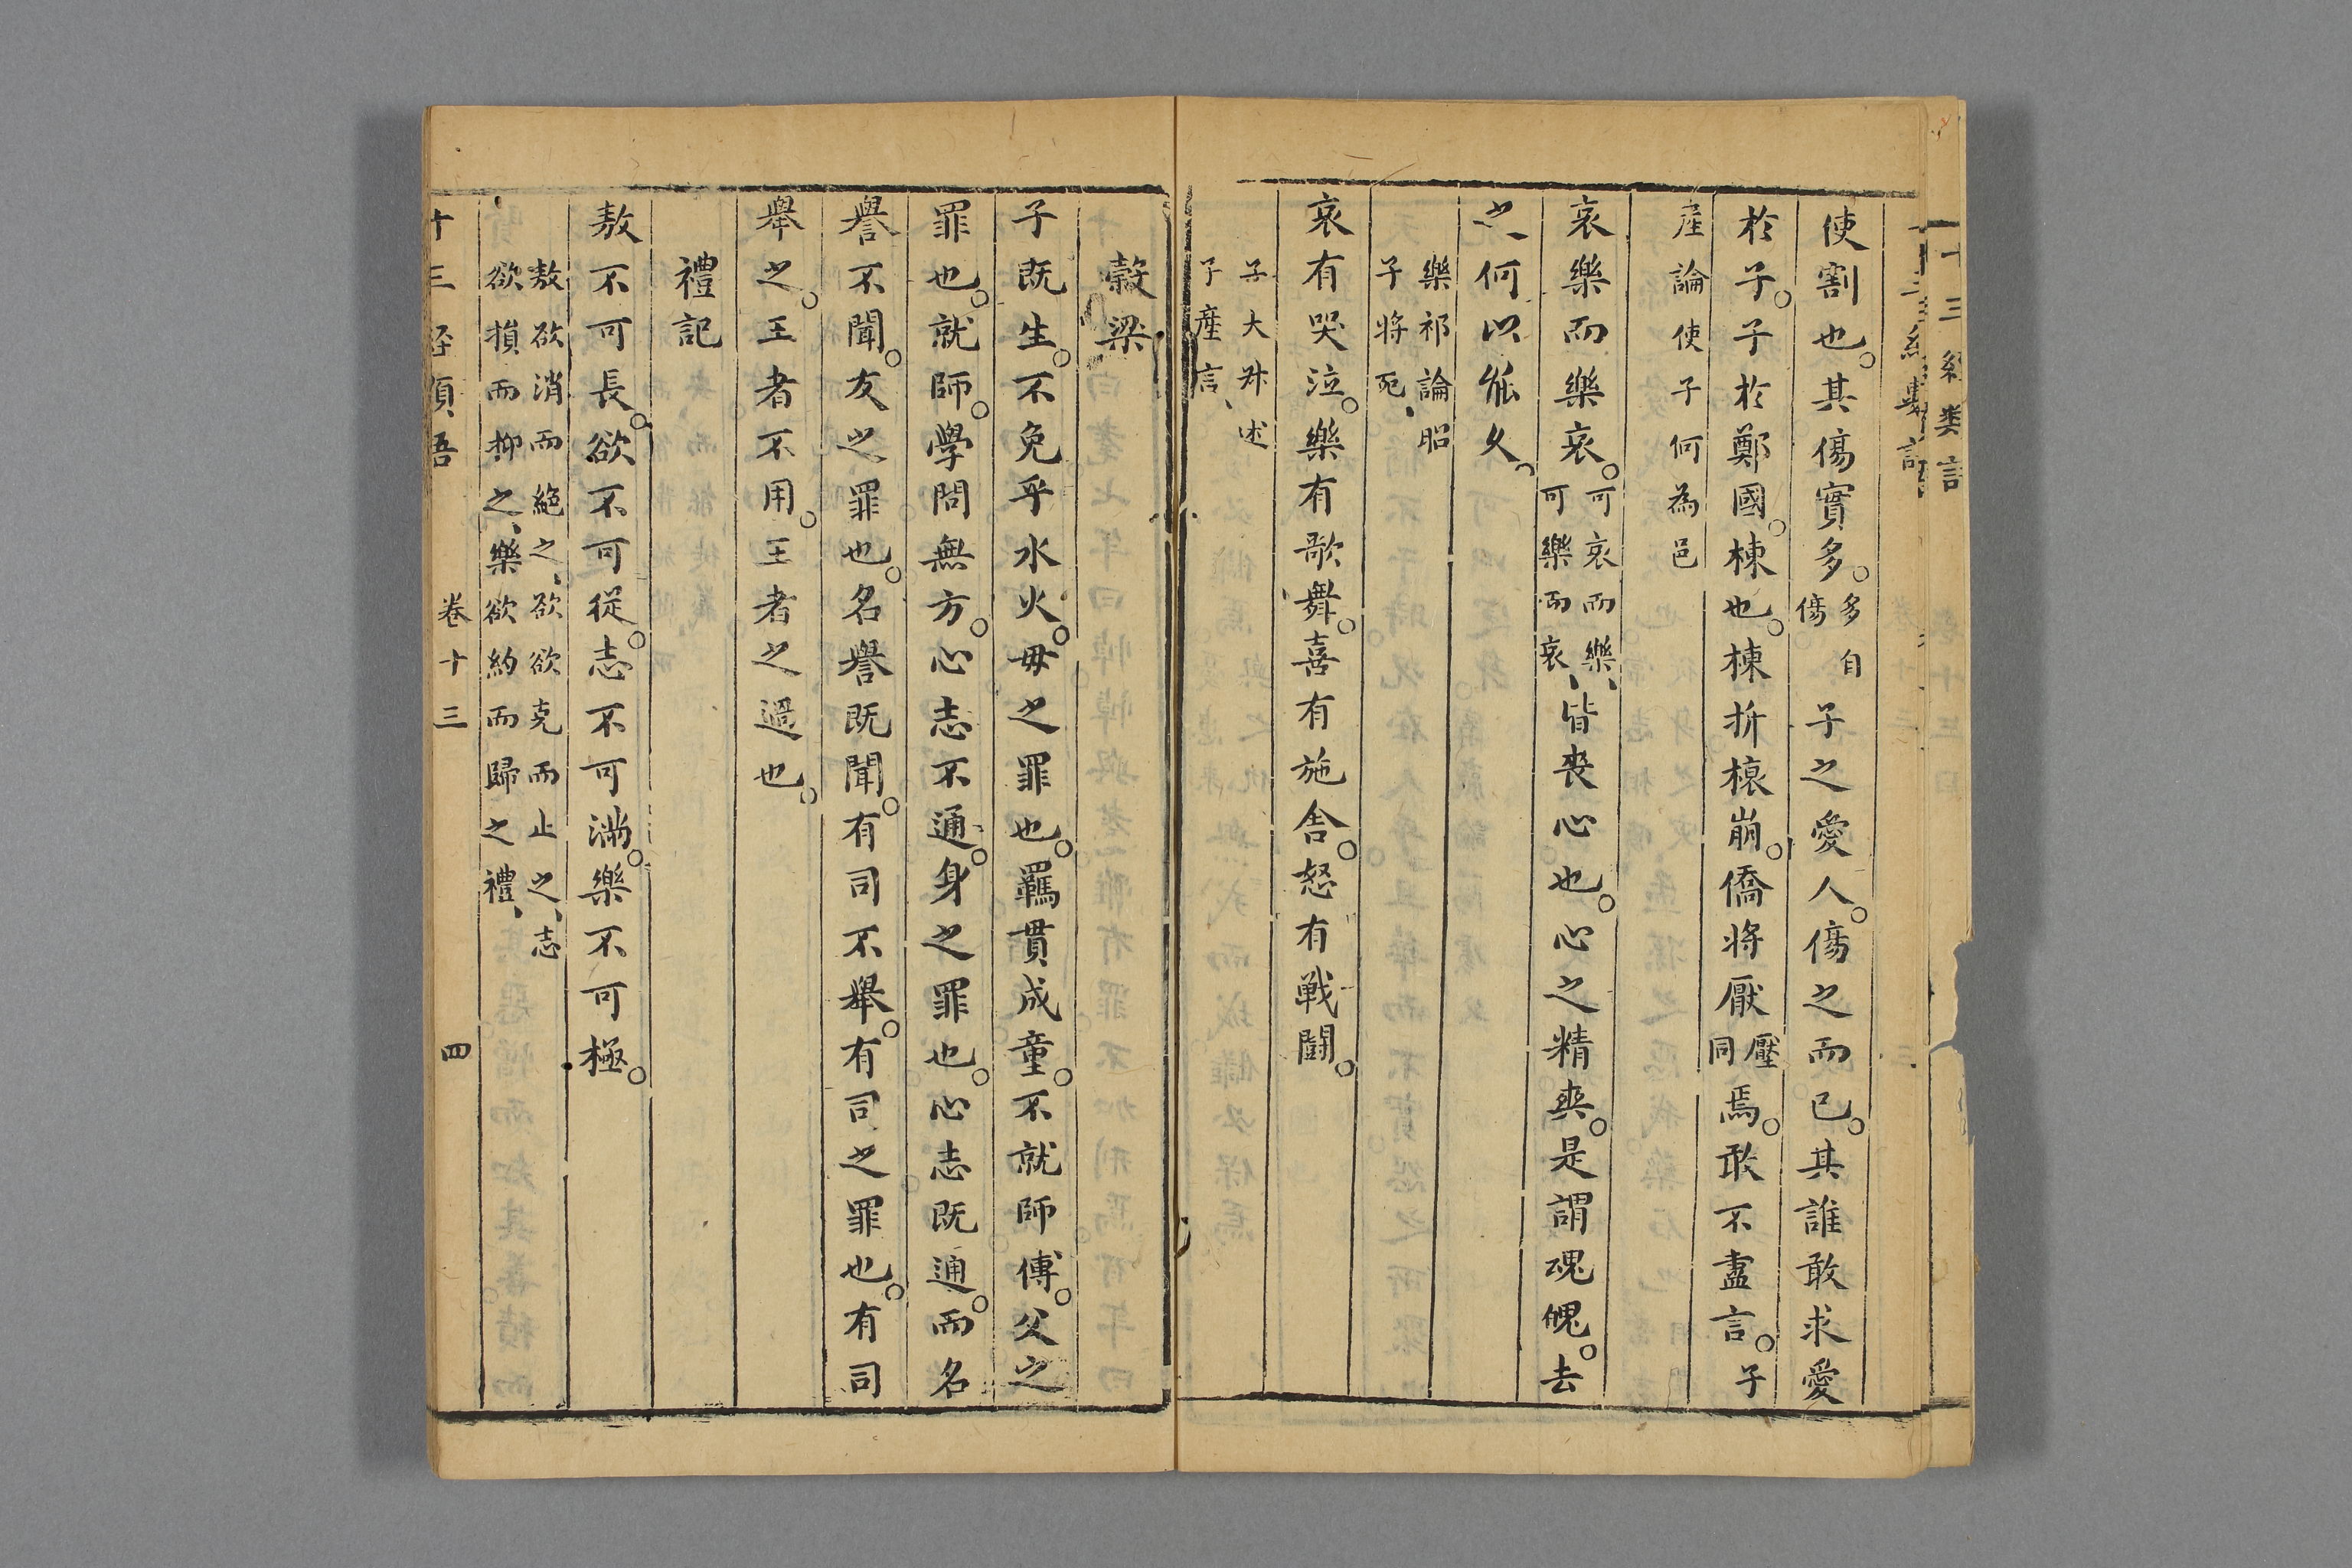 使割也其傷實多多自傷子之愛人傷之而已其誰敢求愛
於子子於鄭國棟也棟折榱崩僑將厭壓同焉敢不盡言子
産論使子何為邑
哀樂而樂哀可哀而樂、可樂而哀、皆喪心也心之精爽是謂魂魄魂魄去
之何以能久
樂祁論昭
子將死、
哀有哭泣樂有歌舞喜有施舍怒有戰鬪
子大叔述
子產言、
穀梁
子既生不免乎水火毋之罪也羈貫成童不就師傅父之
罪也就師學問無方心志不通身之罪也心志既通而名
譽不聞友之罪也名譽既聞有司不舉有司之罪也有司
舉之王者不用王者之過也
禮記
敖不可長欲不可從志不可滿樂不可極
敖欲消而絕之、欲欲克而止之、志
欲損而抑之、樂欲約而歸之禮、
十三經類語 卷十三 四